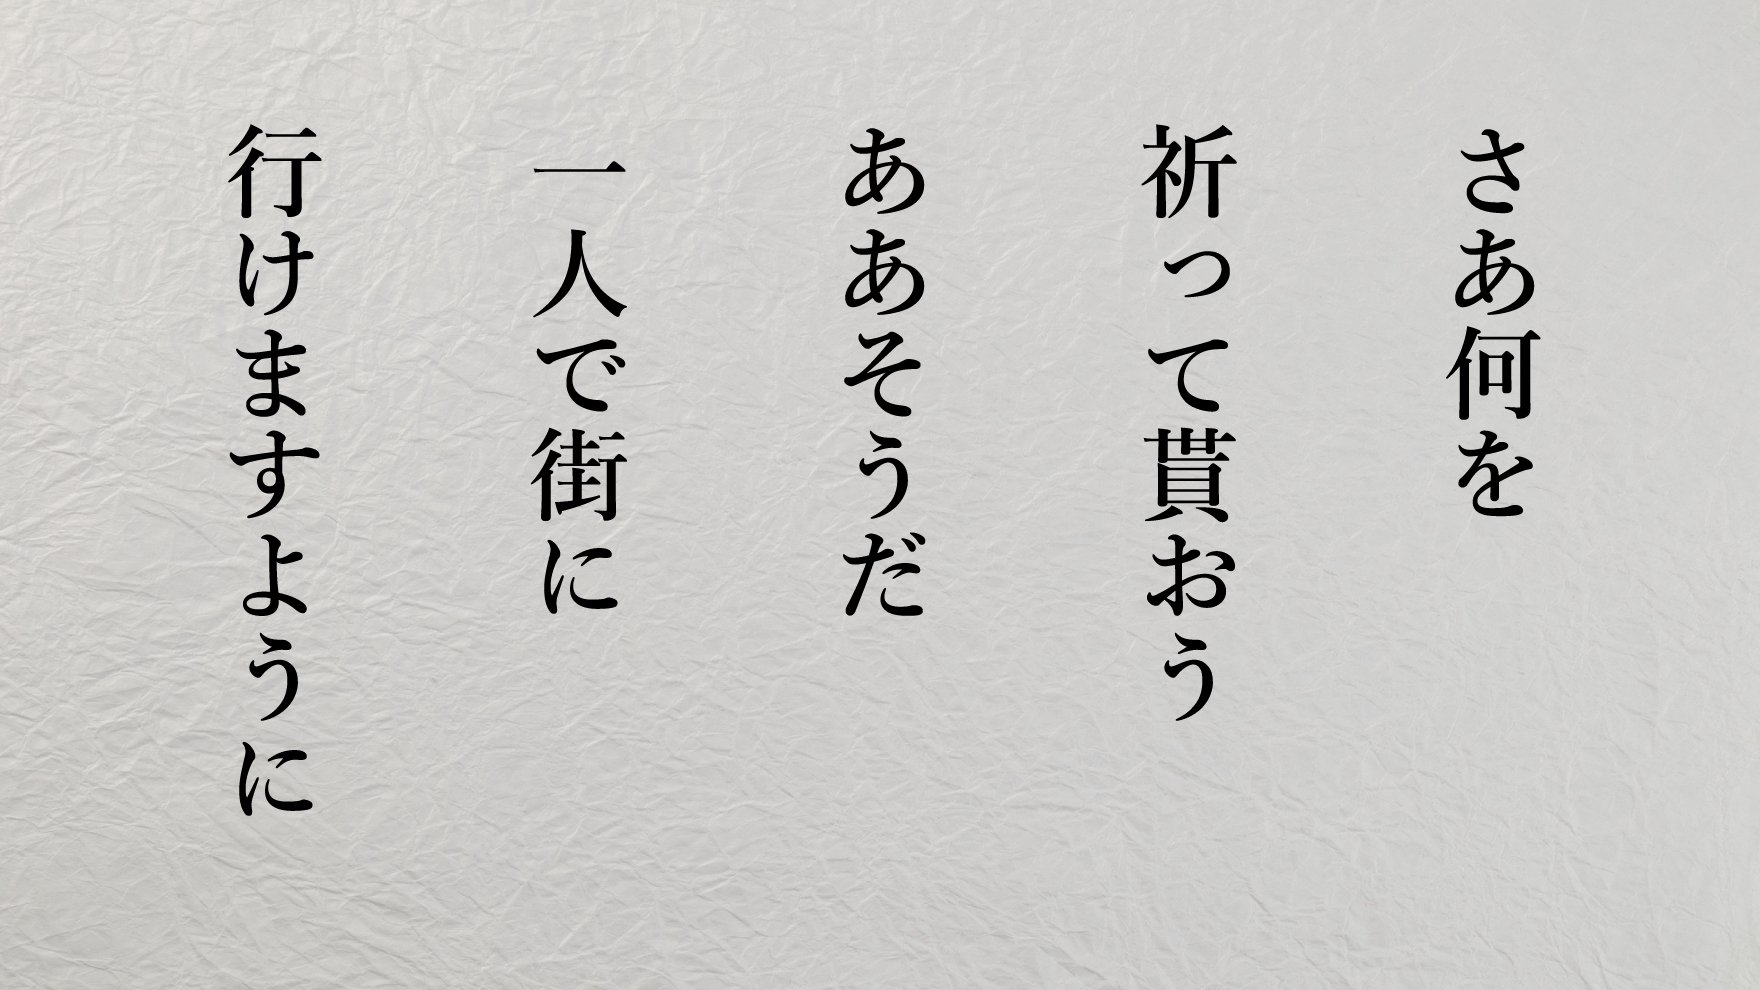 さあ何を
祈って貰おう
ああそうだ
一人で街に
行けますように